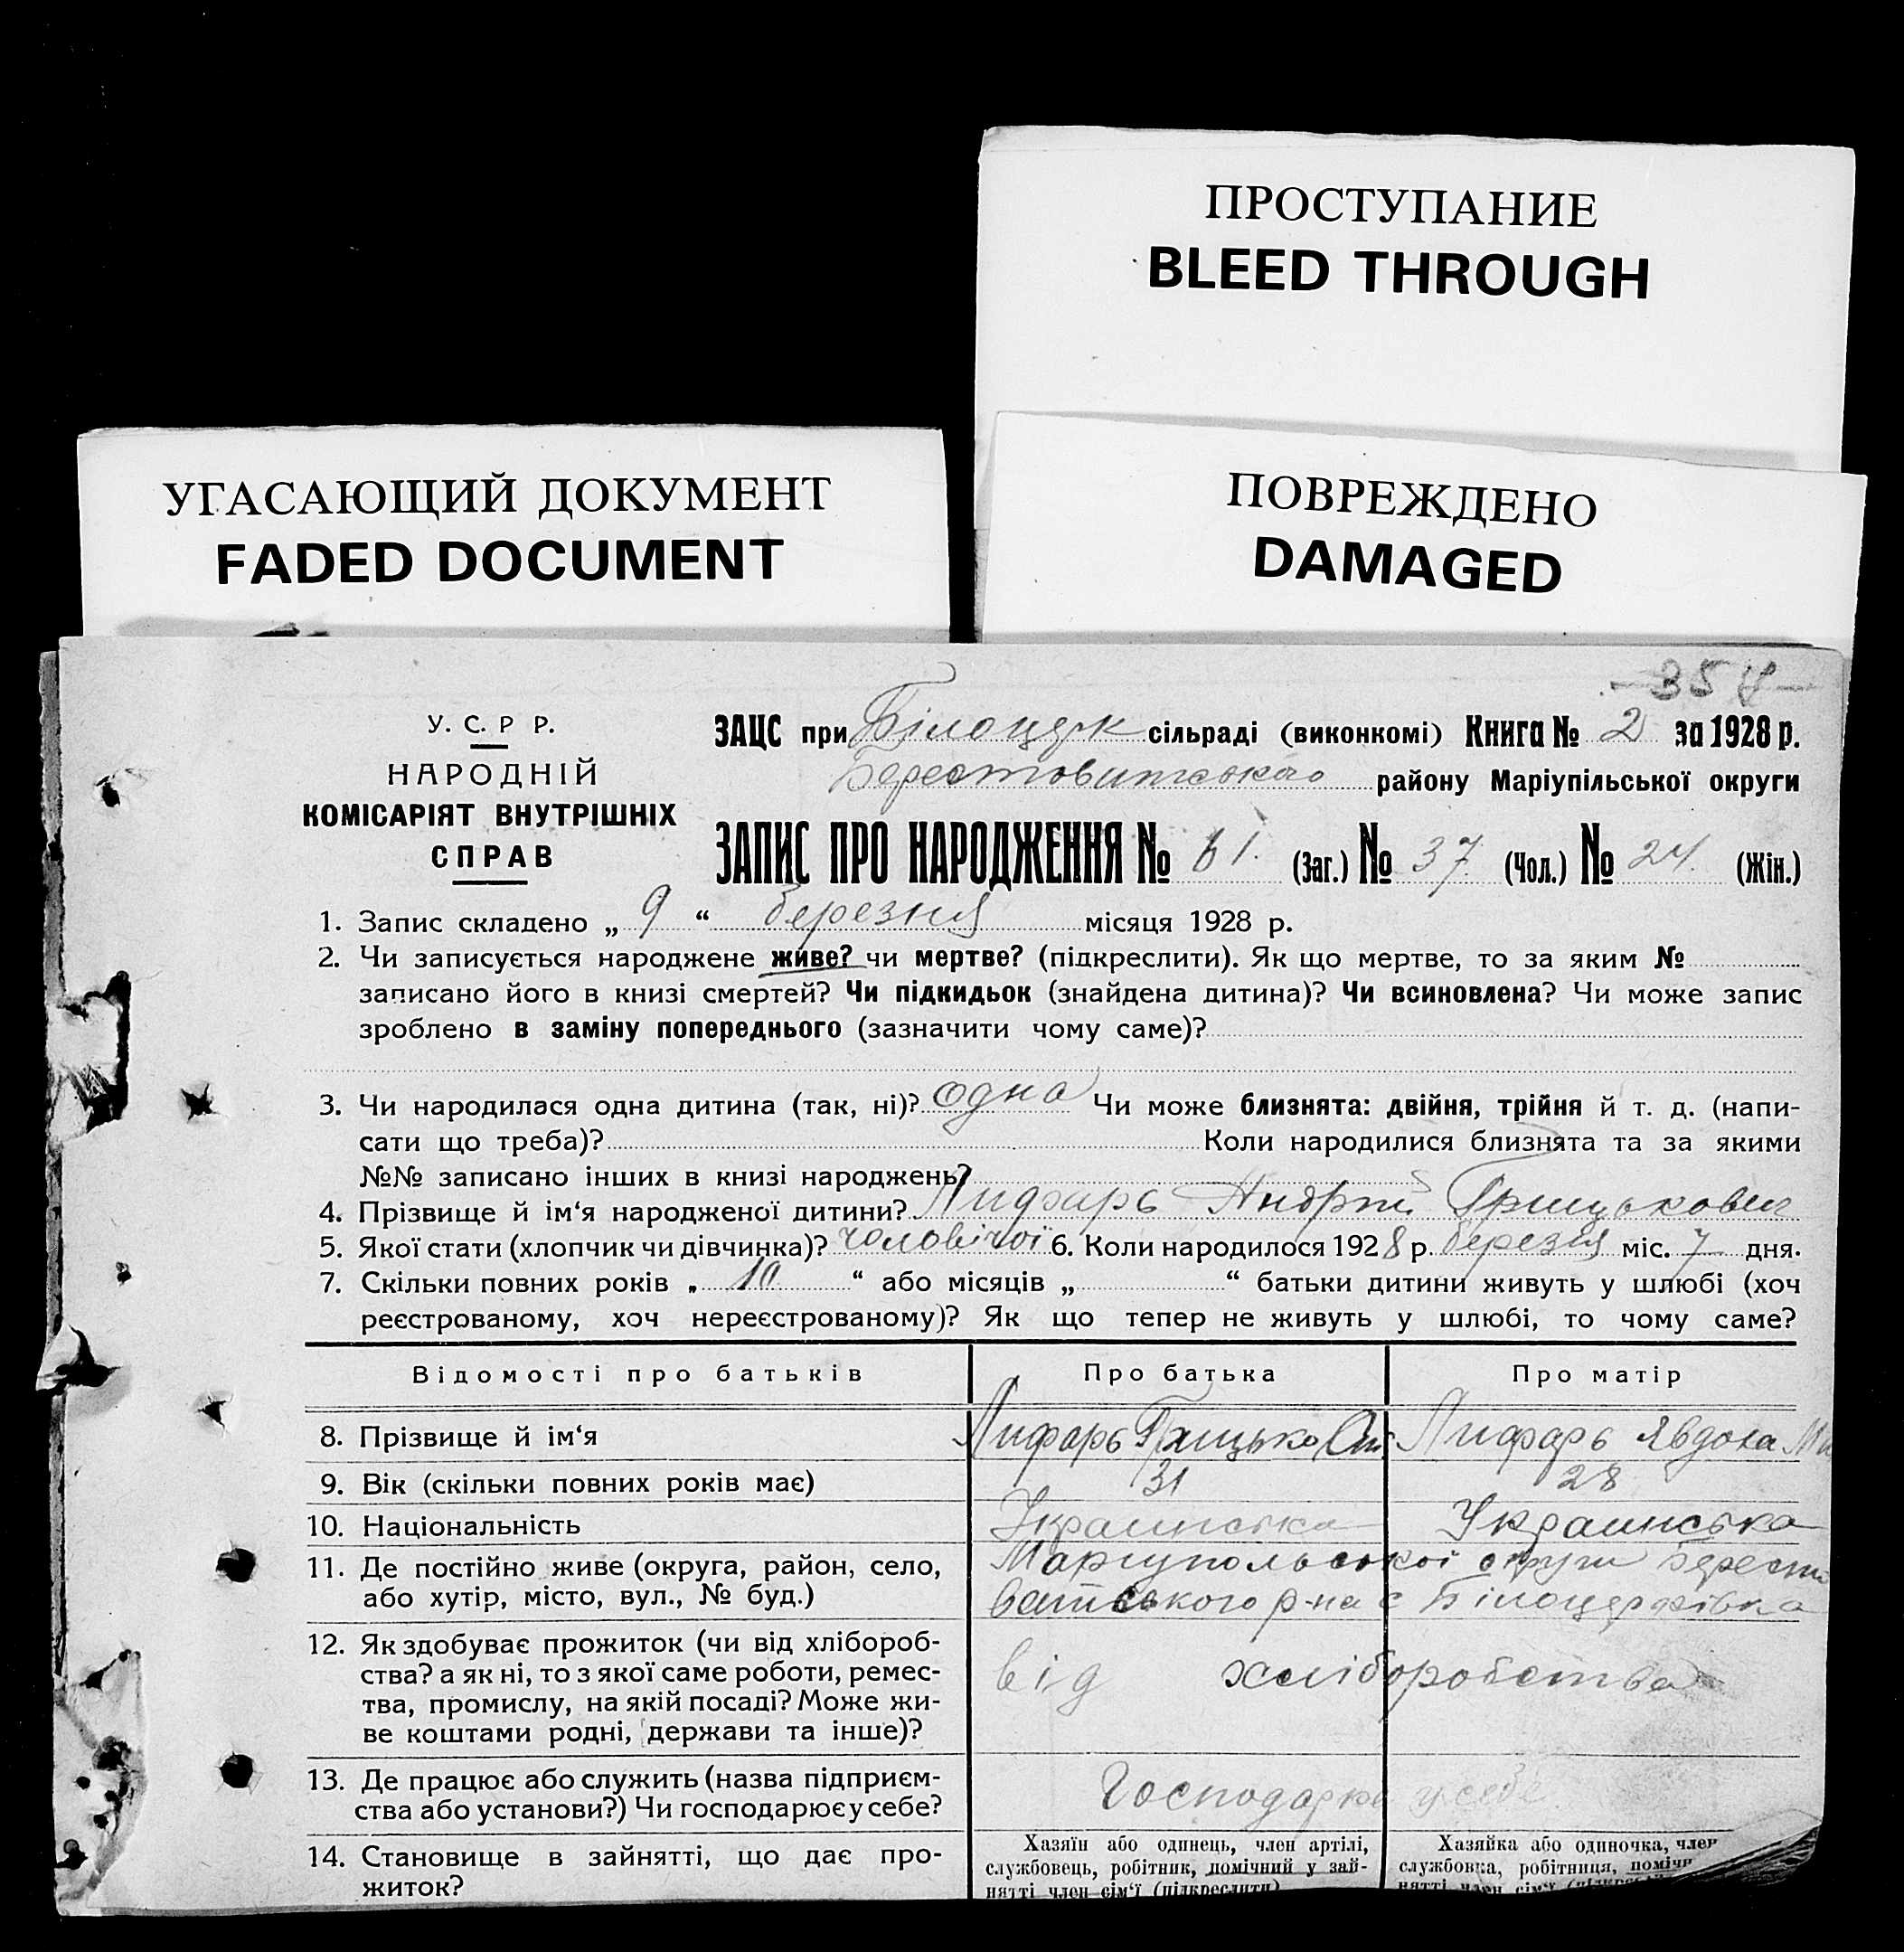 ПРОСТУПАНИЕ
BLEED THROUGH
УГАСАЮЩИЙ ДОКУМЕНТ
FADED DOCUMENT
ПОВРЕЖДЕНО
DAMAGED
У. С. Р Р.
НАРОДНІЙ
КОМІСАРІЯТ ВНУТРІШНІХ
СПРАВ
ЗАЦС при Білоцерк сільраді (виконкомі) Книга № 2 за 1928 р.
району Маріупільської округи
ЗАПИС ПРО НАРОДЖЕННЯ № 61. (Заг.) № 37 (Чол.) № 24. (Жін.)
1. Запис складено „ 9 “ березня місяця 1928 р.
2. Чи записується народжене живе? чи мертве? (підкреслити). Як що мертве, то за яким №
записано його в книзі смертей? Чи підкидьок (знайдена дитина)? Чи всиновлена? Чи може запис
зроблено в заміну попереднього (зазначити чому саме)?
3. Чи народилася одна дитина (так, ні)? одна Чи може близнята: двійня, трійня й т. д. (напи-
сати що треба)? Коли народилися близнята та за якими
№№ записано інших в книзі народжень?
4. Прізвище й ім‘я народженої дитини? Лифарь Андрій Грицькович
5. Якої стати (хлопчик чи дівчинка)? чоловічої 6. Коли народилося 1928 р. березня міс. 7 дня.
7. Скільки повних років „ 10 “ або місяців „ “ батьки дитини живуть у шлюбі (хоч
реєстрованому, хоч нереєстрованому)? Як що тепер не живуть у шлюбі, то чому саме?
Відомості про батьків Про батька Про матір
8. Прізвище й ім‘я Лифарь Грицько Лифарь Явдоха
9. Вік (скільки повних років має) 31 28
10. Національність Украинська Украинська
11. Де постійно живе (округа, район, село, Маріупольської округи Берести
або хутір, місто, вул., № буд.) ватського р-на с Білоцерківка
12. Як здобуває прожиток (чи від хлібороб-
ства? а як ні, то з якої саме роботи, ремес- від хліборобства
тва, промислу, на якій посаді? Може жи-
ве коштами родні, держави та інше)?
13. Де працює або служить (назва підприєм-
ства або установи?) Чи господарює у себе? у себе
14. Становище в зайнятті, що дає про-
житок?
Хазяїн або одинець, член артілі,
службовець, робітник, помічний у зай-
нятті член сім‘ї (підкреслити)
Хазяйка або одиночка, член
службовка, робітниця, помічн
нятті член сім‘ї